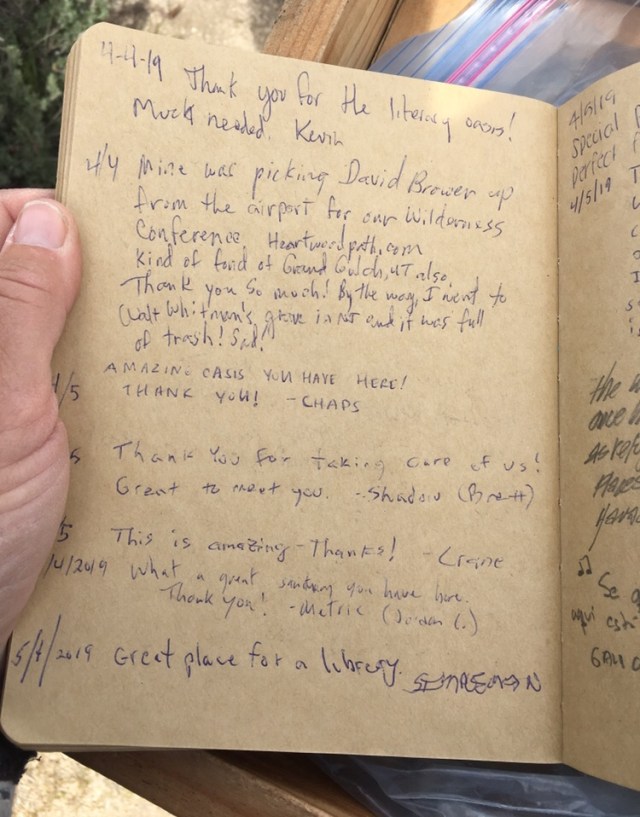 4-4-19 Thank you for the literary oasis!
Much needed. Kevin
4/4 Mine was picking David Brower up
from the airport for our Wilderness
Conference Heartwoodpath.com
Kind of fond of Grand Gulch, UT also.
Thank you so much! By the way, I went to
Walt Whitman's grave in and it was full
of trash! Sad!
AMAZING OASIS YOU HAVE HERE!
4/5 THANK YOU! -CHAPS
Thank You for taking care of us!
Great to meet you. -Shadow (Brett)
5 This is amazing - Thanks! -Crane
/4/2019 What a great you have here.
Thank you! -Metric (Jordan C.)
5/4/2019 Great place for a library.
4/5/19
special
perfect
4/5/19
the
once
Se
aqui está